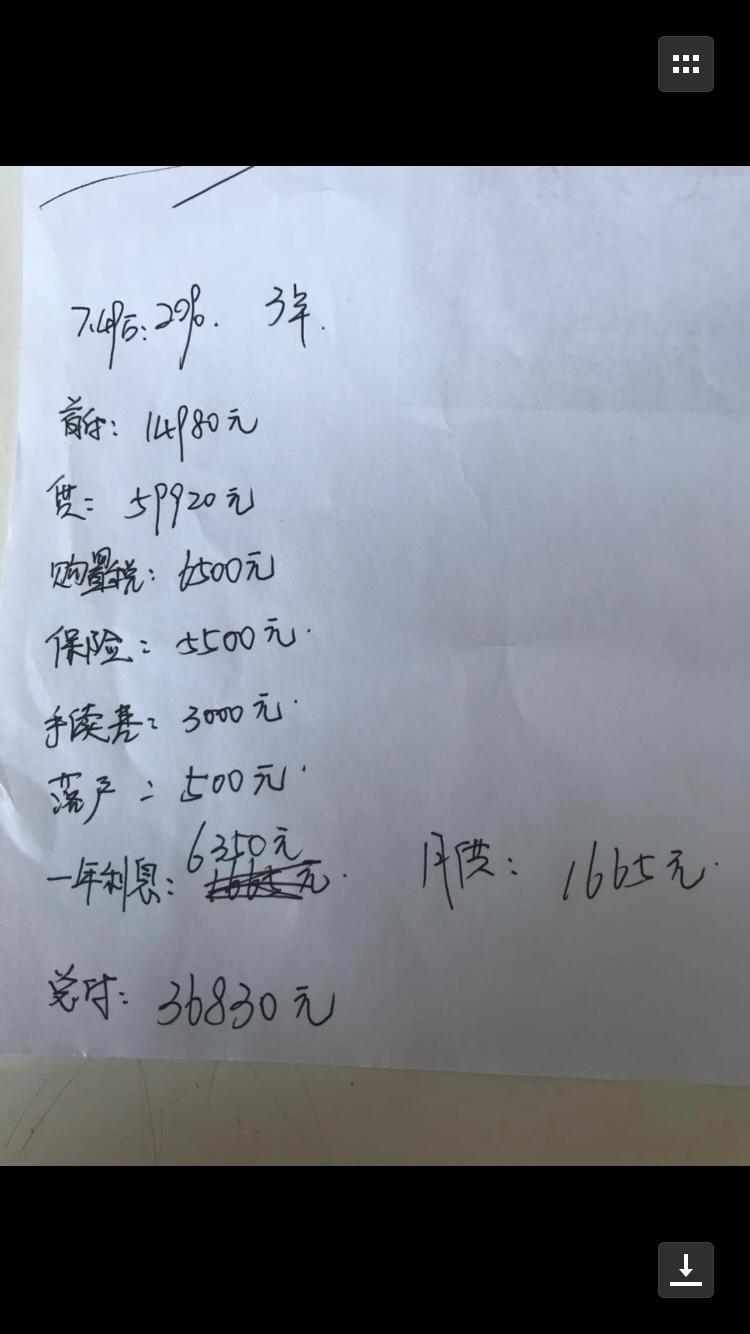 7.49万: 20%. 3年.
首付: 14980元
贷: 59920元
购置税: 6500元
保险: 5500元.
手续费: 3000元.
落户: 500元.
6350元
一年利息: 1665元. 月供: 1665元.
总付: 36830元